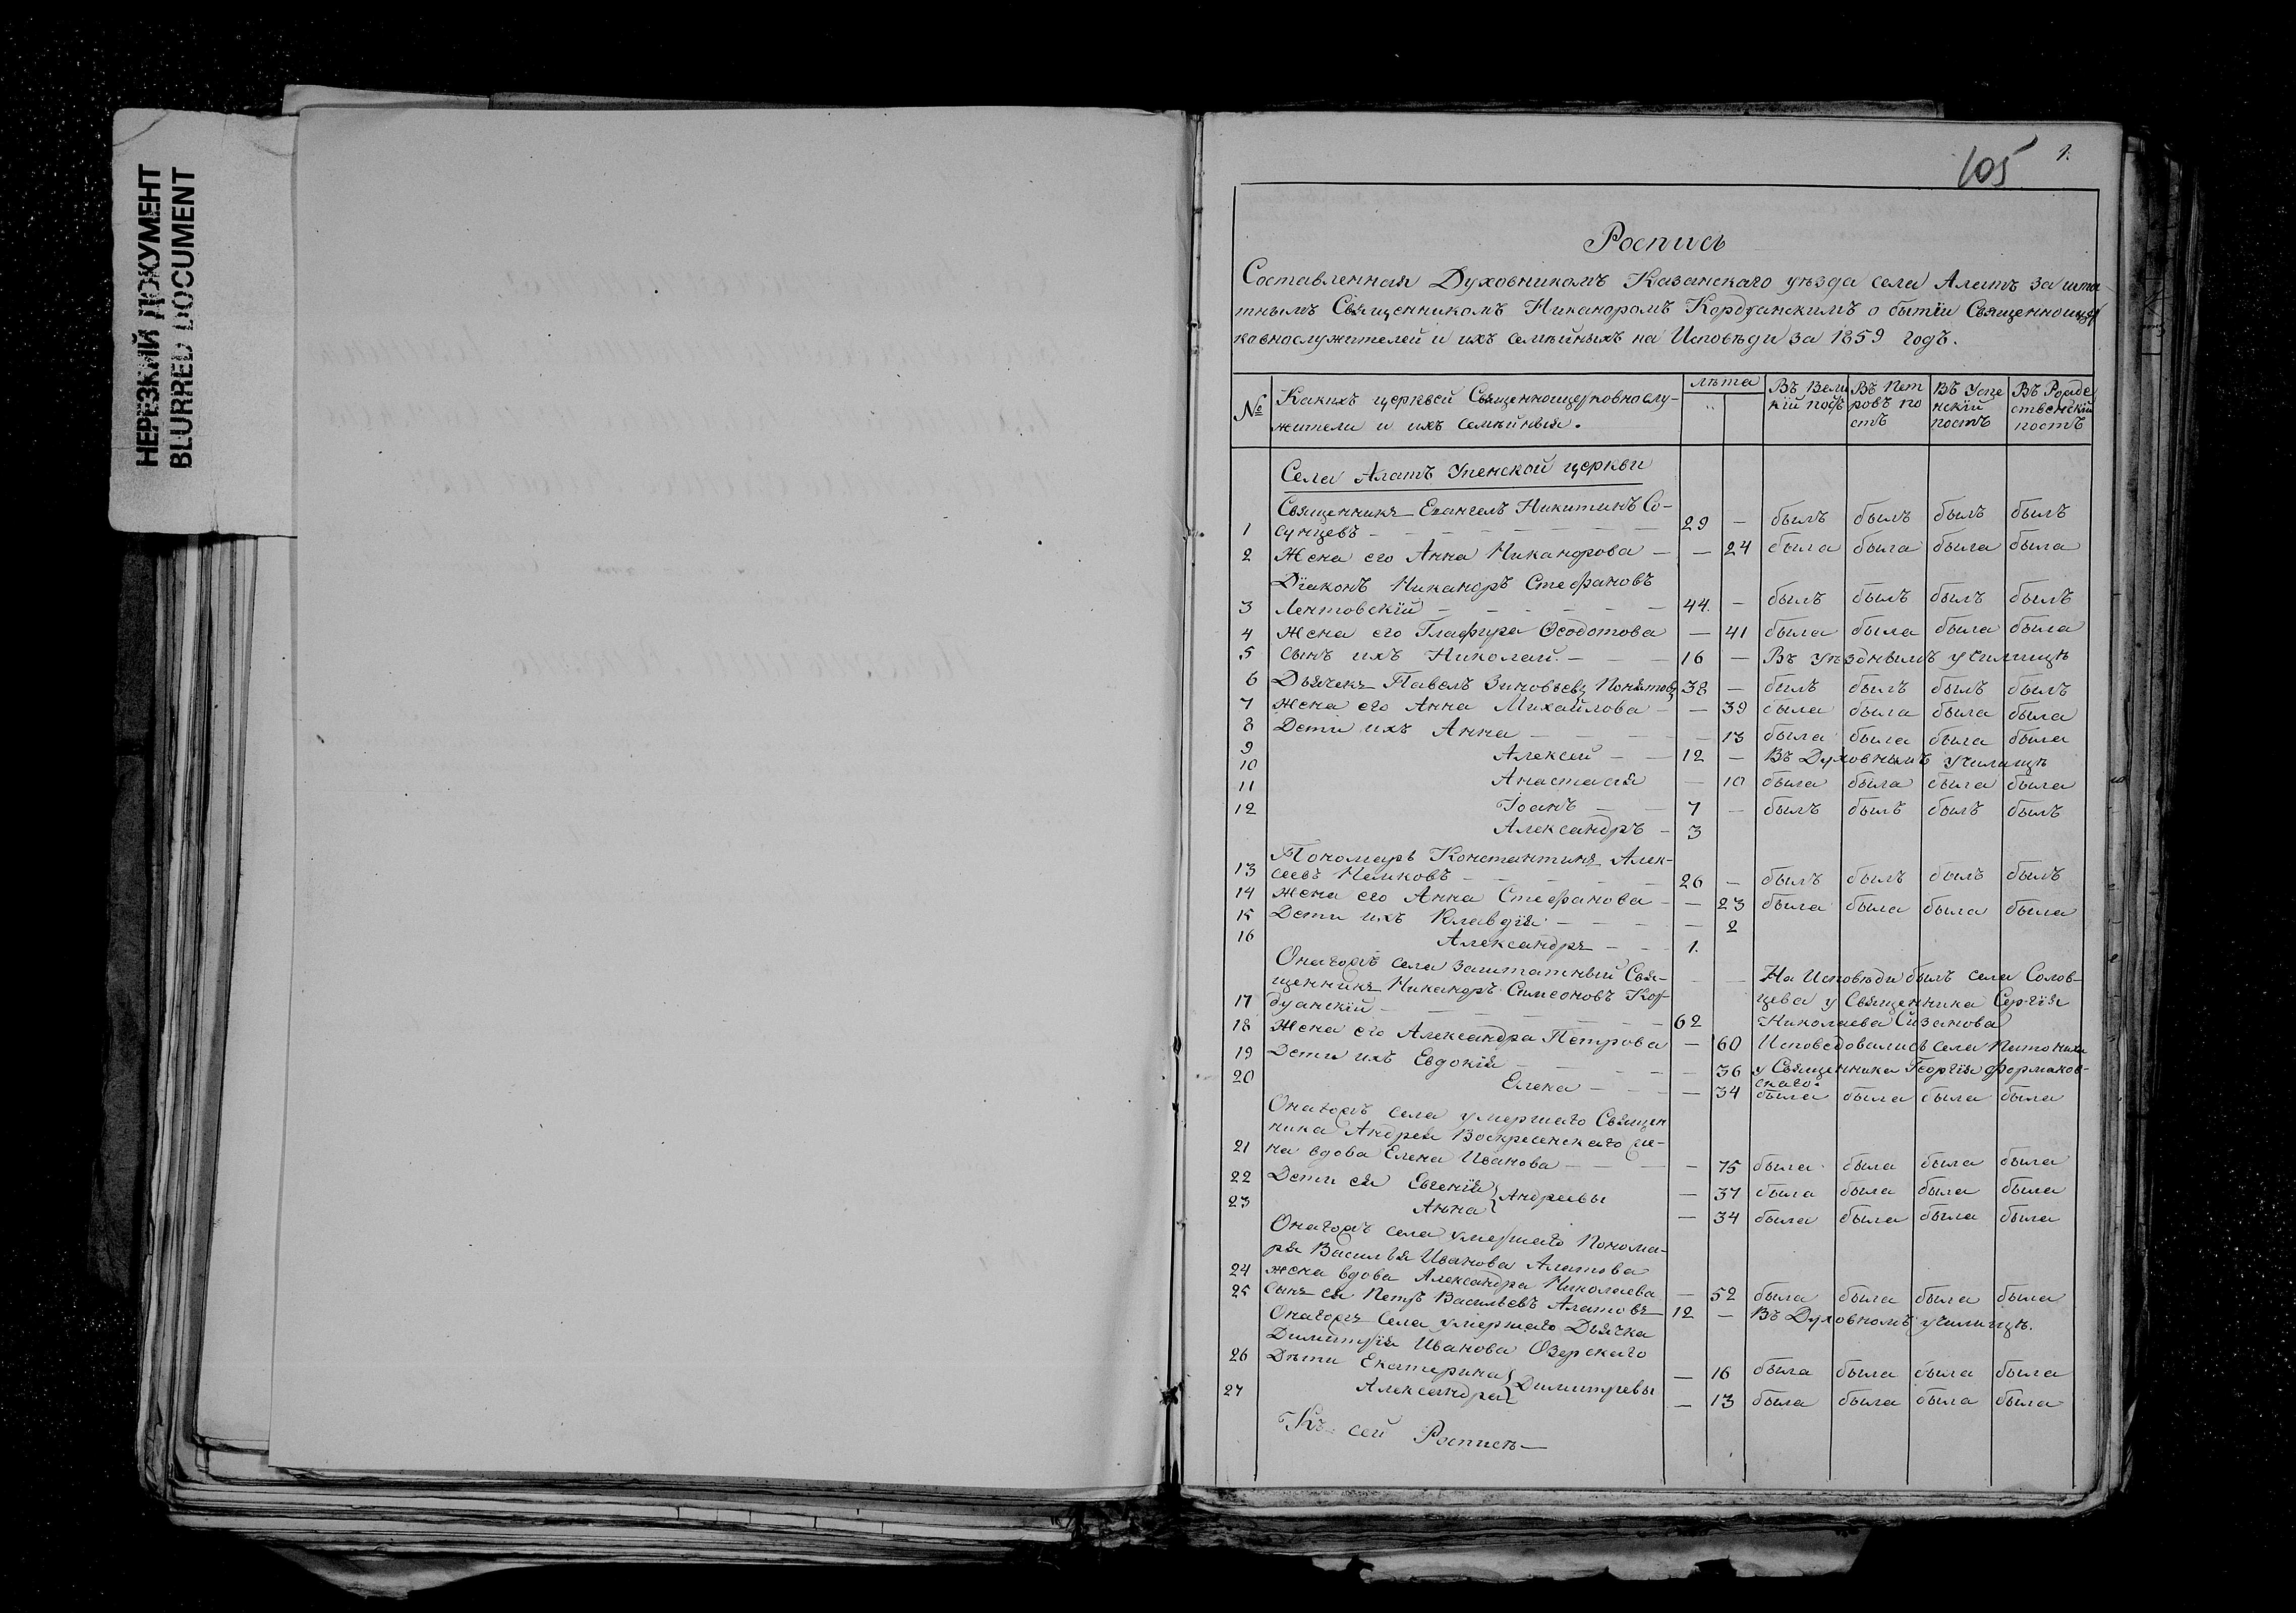 НЕРЕЗКИЙ ДОКУМЕНТ
BLURRED DOCUMENT
105 1.
Роспись
Составленная Духовникомъ Казанскаго уѣзда села Алатъ зашта
тнымъ Священникомъ Никандромъ Кордуанскимъ о бытіи Священноцер
ковнослужителей и ихъ семейныхъ на Исповѣди за 1859 годъ.
№ Какихъ церквей Священноцерковнослу- лѣта Въ Вели Въ Пет Въ Успе Въ Рожде
жители и ихъ семейныя. кій постъ ровъ по нскій ственскій
стъ постъ постъ
Села Алатъ Упенской церкви
Священникъ Евангелъ Никитинъ Со-
1 сунцевъ 29 — былъ былъ былъ былъ
2 Жена его Анна Никандрова — 24 была была была была
Діаконъ Никандръ Стефановъ
3 Лентовскій 44. — былъ былъ былъ былъ
4 Жена его Глафира Ѳеодотова — 41 была была была была
5 Сынъ ихъ Николай. 16 — Въ Уѣздныимъ училищѣ
6 Дьячекъ Павелъ Зиновьевъ Понятовъ 38 — былъ былъ былъ былъ
7 Жена его Анна Михайлова — 39 была была была была
8 Дети ихъ Анна — 13 была была была была
9 Алексей 12 — Въ Духовнымъ училищѣ
10 Анастасія — 10 была была была была
11 Іоанъ 7 — былъ былъ былъ былъ
12 Александръ 3
Пономарь Константинъ Алек-
13 сеевъ Пеликовъ 26 — былъ былъ былъ былъ
14 Жена его Анна Стефанова — 23 была была была была
15 Дети ихъ Клавдія — 2
16 Александръ 1.
Онагожъ села заштатный Свя- — — На Исповѣди былъ села Солов-
щенникъ Никандръ Симеоновъ Кор- цева у Священника Сергія
17 дуанскій 62 Николаева Сизанова
18 Жена его Александра Петрова — 60 Исповедовались села
19 Дети ихъ Евдокія — 36 у Священника Георгія Формаков-
скаго.
20 Елена — 34 была была была была
Онагожъ села умершаго Священ
ника Андрея Воскресенскаго же-
21 на вдова Елена Иванова — 75 была была была была
22 Дети ея Евгенія } Андреевы — 37 была была была была
23 Анна — 34 была была была была
Онагожъ села умершаго Понома-
ря Василья Иванова Алатова
24 жена вдова Александра Николаева — 52 была была была была
25 Сынъ ея Петръ Васильевъ Алатовъ 12 — Въ Духовномъ училищѣ.
Онагожъ села умершаго Дьячка
Димитрія Иванова Озерскаго
26 Дѣти Екатерина } Димитревы — 16 была была была была
27 Александра — 13 была была была была
Къ сей Росписѣ